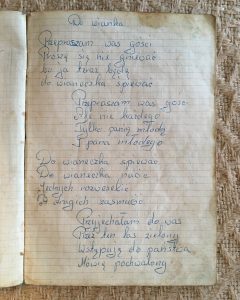 Do wianka
Przepraszam was gości
Proszę się nie gniewać
bo ja teraz będę
do wianeczka śpiewać
Przepraszam was gości
Ale nie każdego
Tylko panią młodą
I pana młodego
Do wianeczka śpiewać
Do wianeczka nucić
Jednych rozweselić
A drugich zasmucić
Przyjechałam do was
Przez ten las zielony
Wstępuję do państwa
Mówię pochwalony